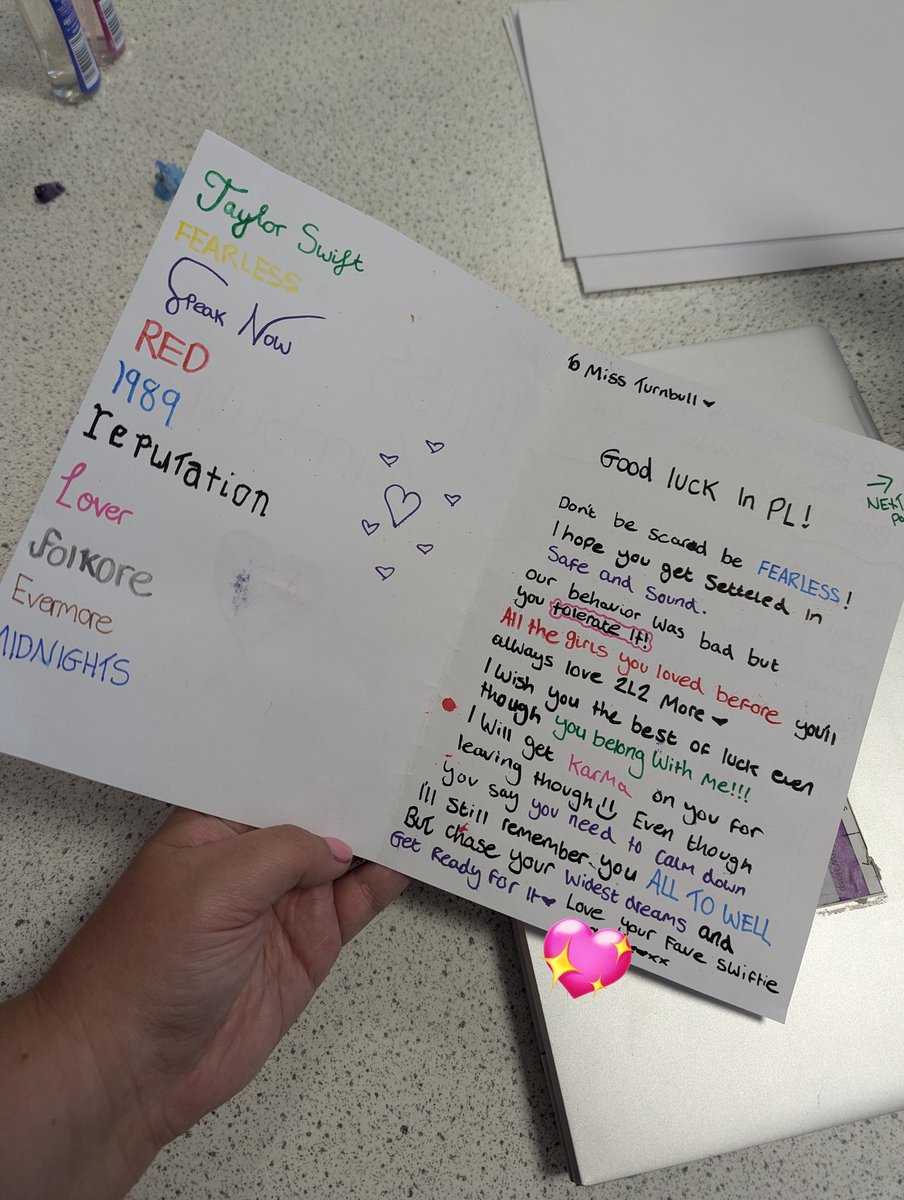 Taylor Swift
FEARLESS
Speak Now
RED
1989
reputation
Lover
folkore
Evermore
MIDNIGHTS
To Miss Turnbull
Good luck in PL!
Don't be scared be FEARLESS!
I hope you get Setteled in
Safe and Sound.
our behavior was bad but
you tolerate it!
All the girls you loved before you'll
always love 2L2 More
I wish you the best of luck even
though you belong with me!!!
I will get Karma on you for
leaving though!! Even though
you say you need to calm down
I'll still remember you ALL TO WELL
But chase your widest dreams and
Get Ready for It Love your fave swiftie
xx
→
NEXT